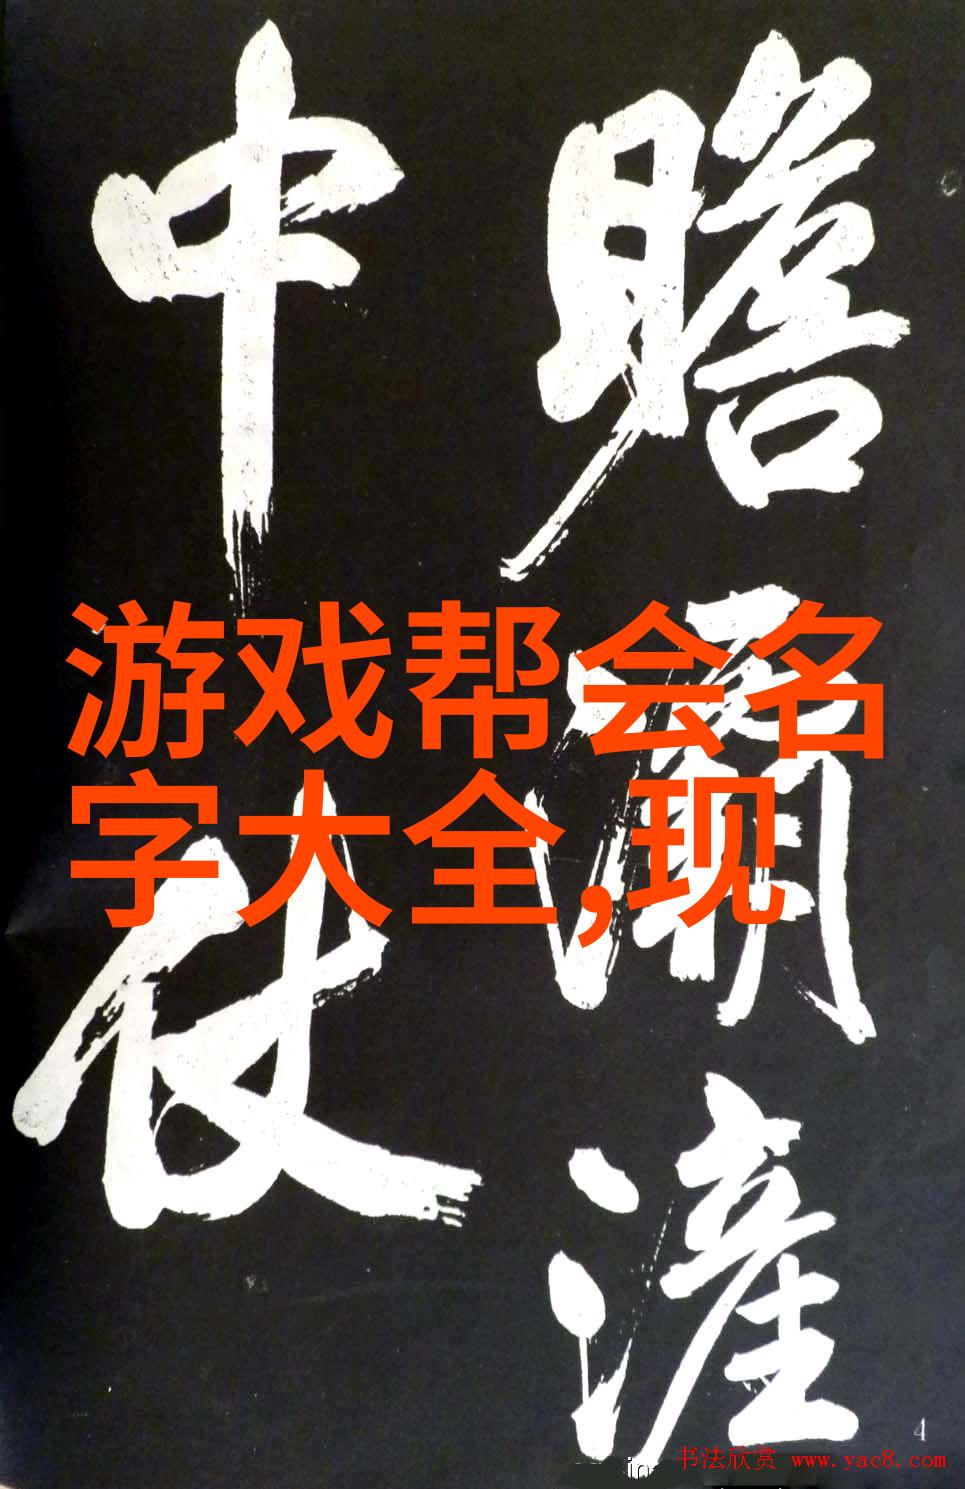 瞻
滻
中
仗
游戏帮会名
字大全,现
4
书法欣赏 www.yac8.com